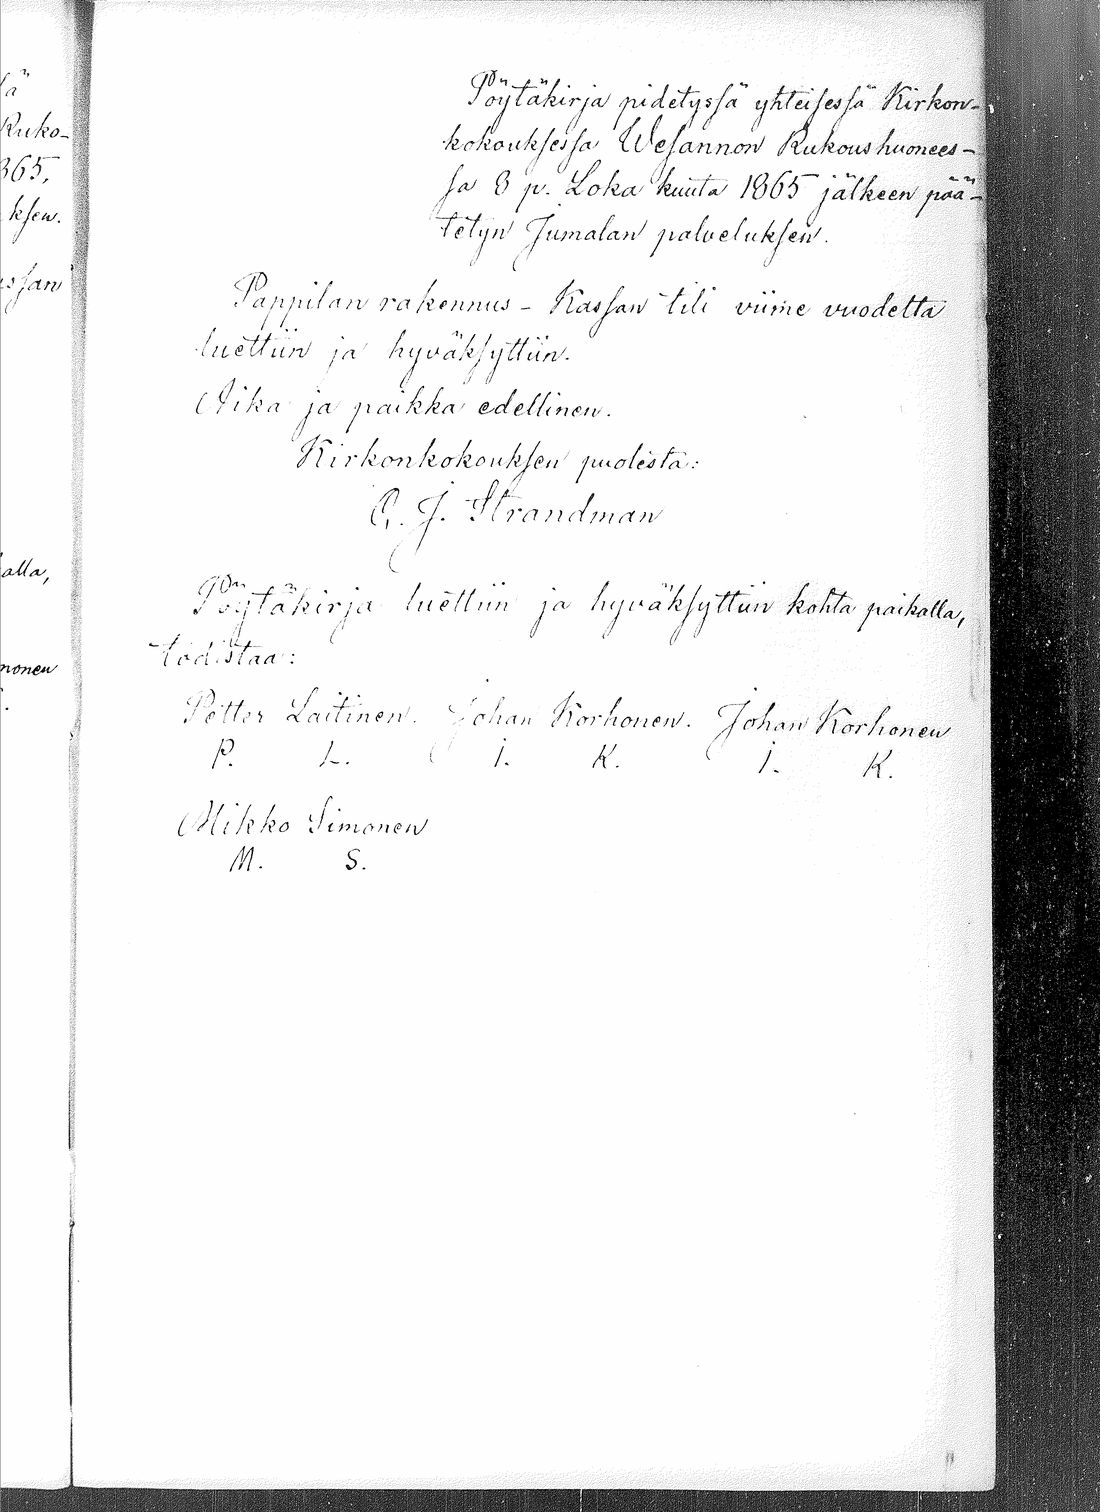 ä
Ruko-
865,
ksen.
assan
alla,
monen
Pöytäkirja pidetyssä yhteisessä Kirkon-
kokouksessa Wesannon Rukoushuonees-
sa 8 p. Loka kuuta 1865 jälkeen pää-
tetyn Jumalan palveluksen.
Pappilan rakennus-Kassan tili viime vuodelta
luettiin ja hyväksyttiin.
Aika ja paikka edellinen.
Kirkonkokouksen puolesta:
C. J. Strandman
Pöytäkirja luettiin ja hyväksyttiin kohta paikalla,
todistaa:
Petter Laitinen. Johan Korhonen. Johan Korhonen
P. L. I. K. I. K.
Mikko Simonen
M. S.